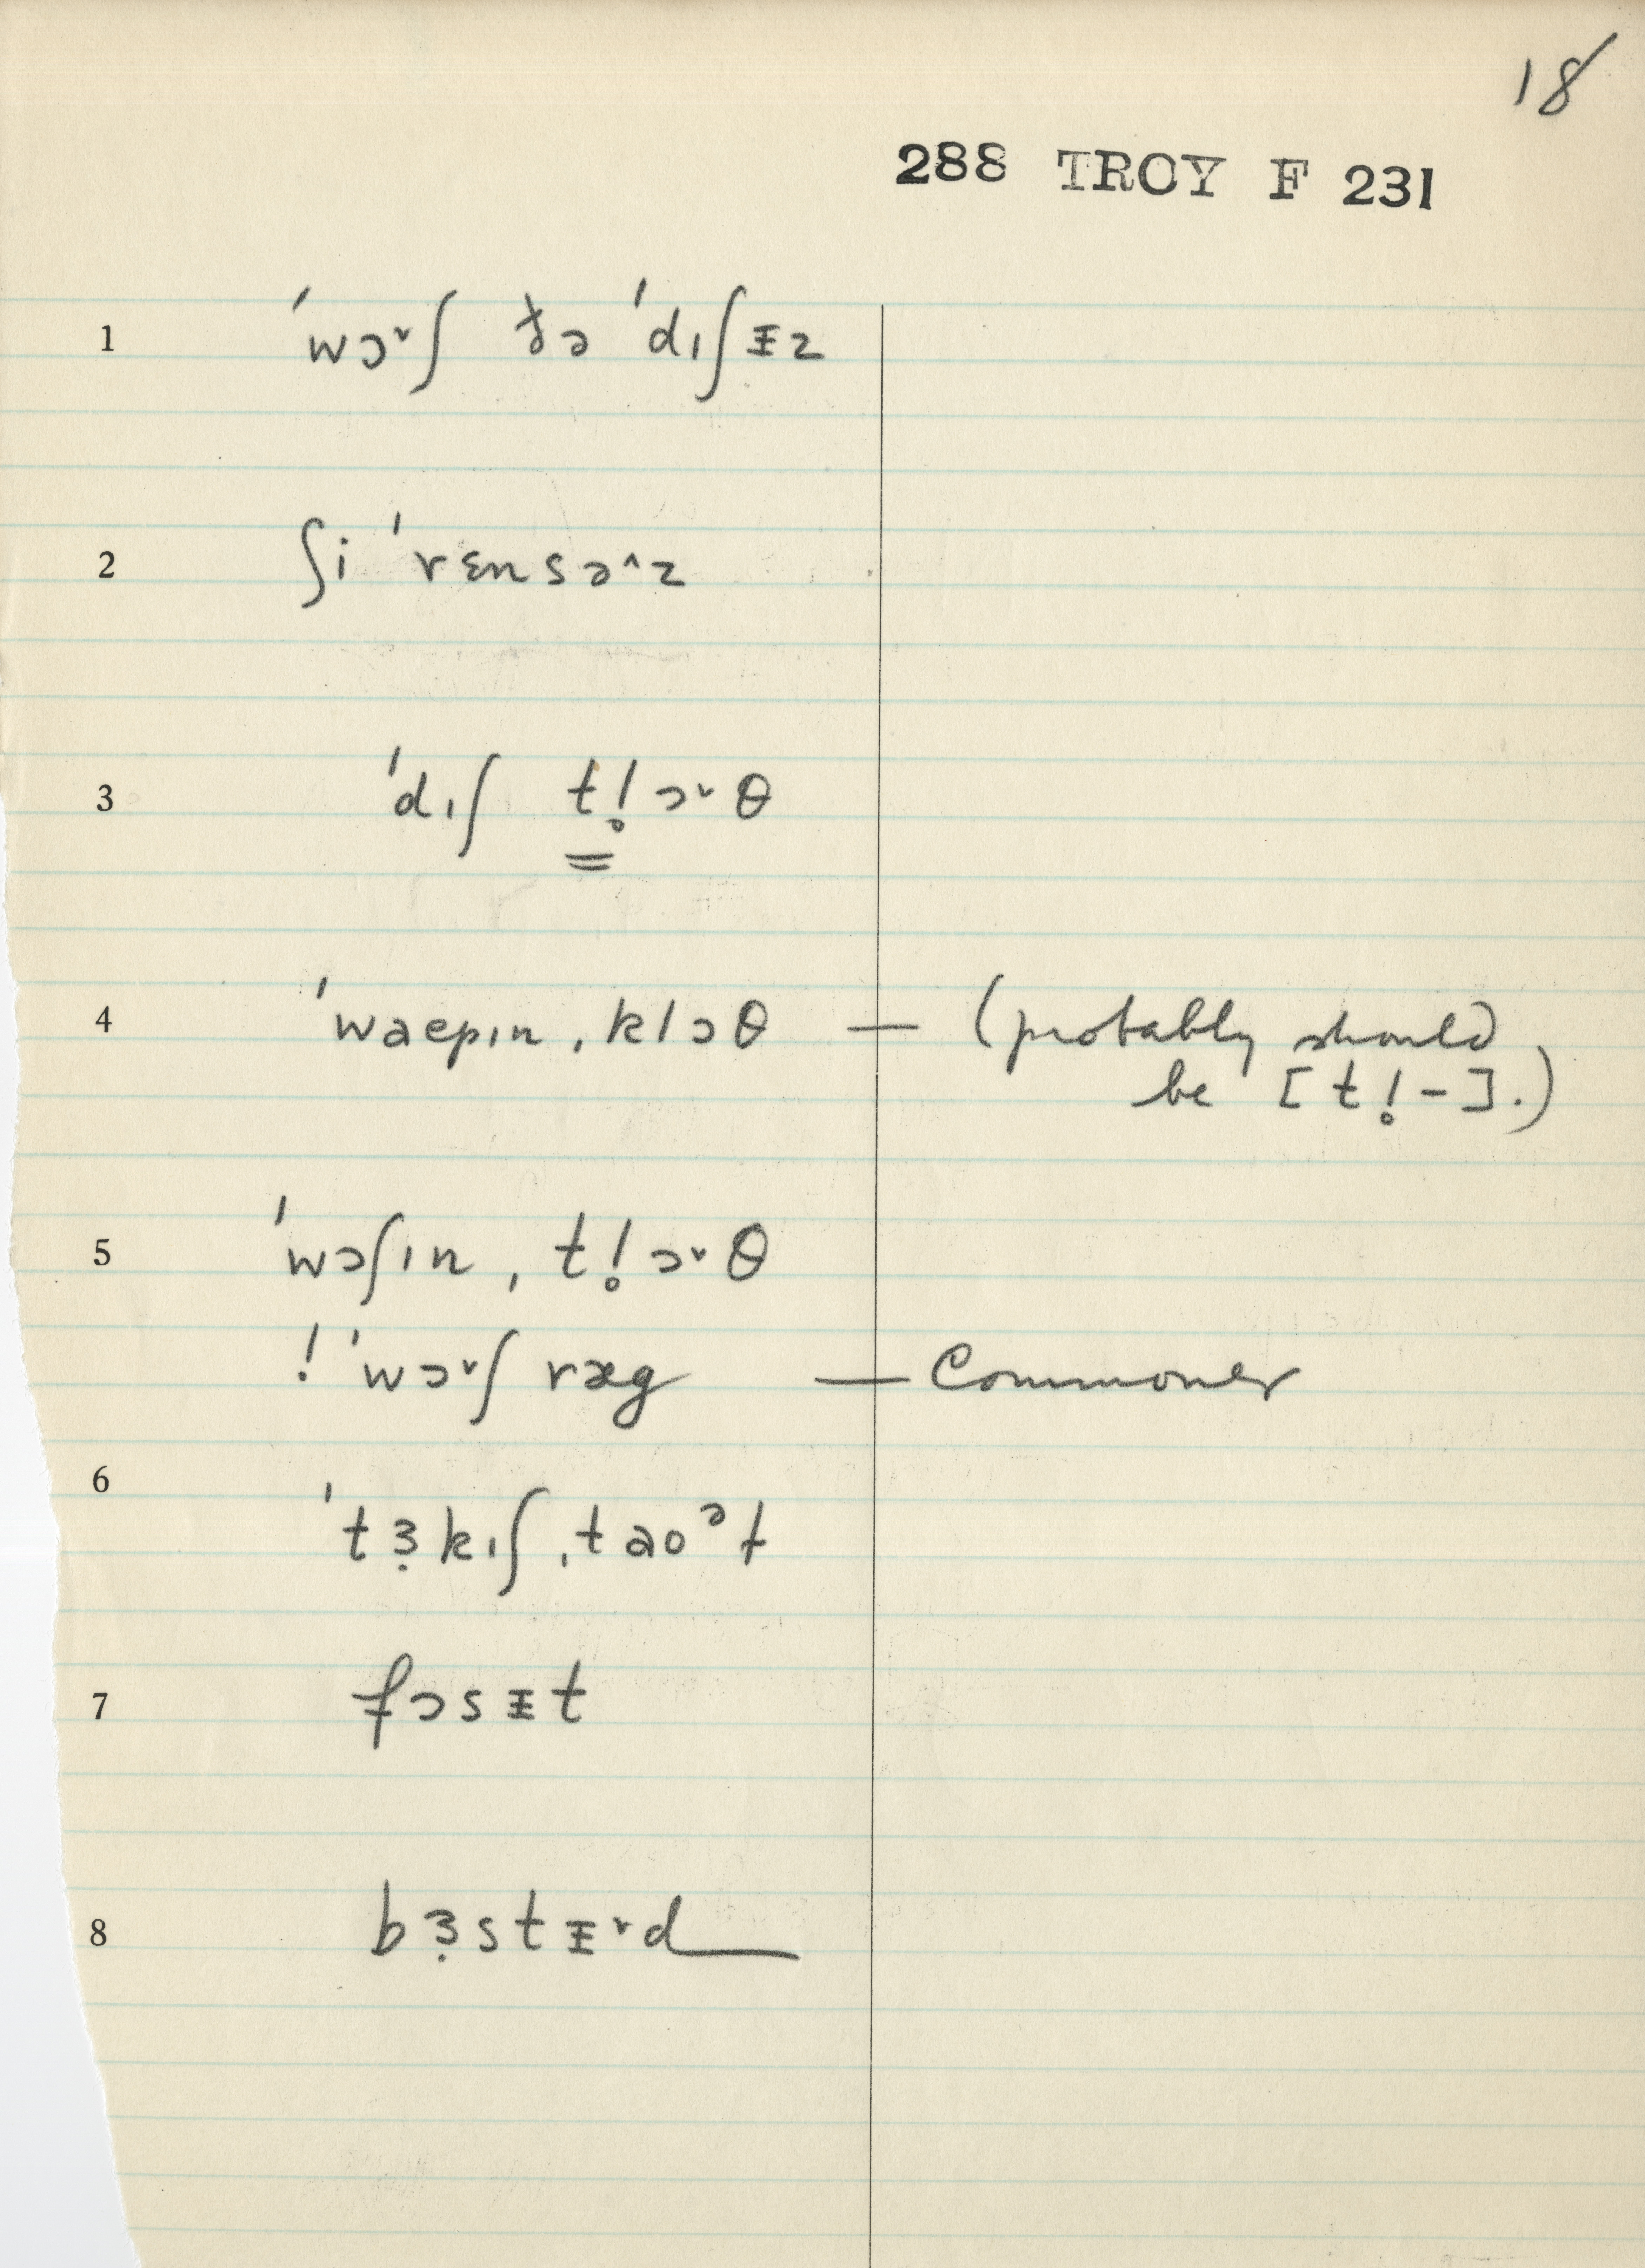 18
288 TROY F 231
1 ˈwɔ˅ʃ ðə ˈdɪʃᵻz
2 ʃi ˈrɛnsə^z
3 ˈdɪʃ tl̥ɔ˅θ
4 ˈwaepɪn ˌklɔθ — (probably should
be [tl̥-].)
5 ˈwɔʃɪn ˌtl̥ɔ˅θ
! ˈwɔ˅ʃ ræg — Commoner
6 ˈtɜ̣kɪʃ ˌtaoᵊɫ
7 fɔsᵻt
8 bɜ̣stᵻ˅d